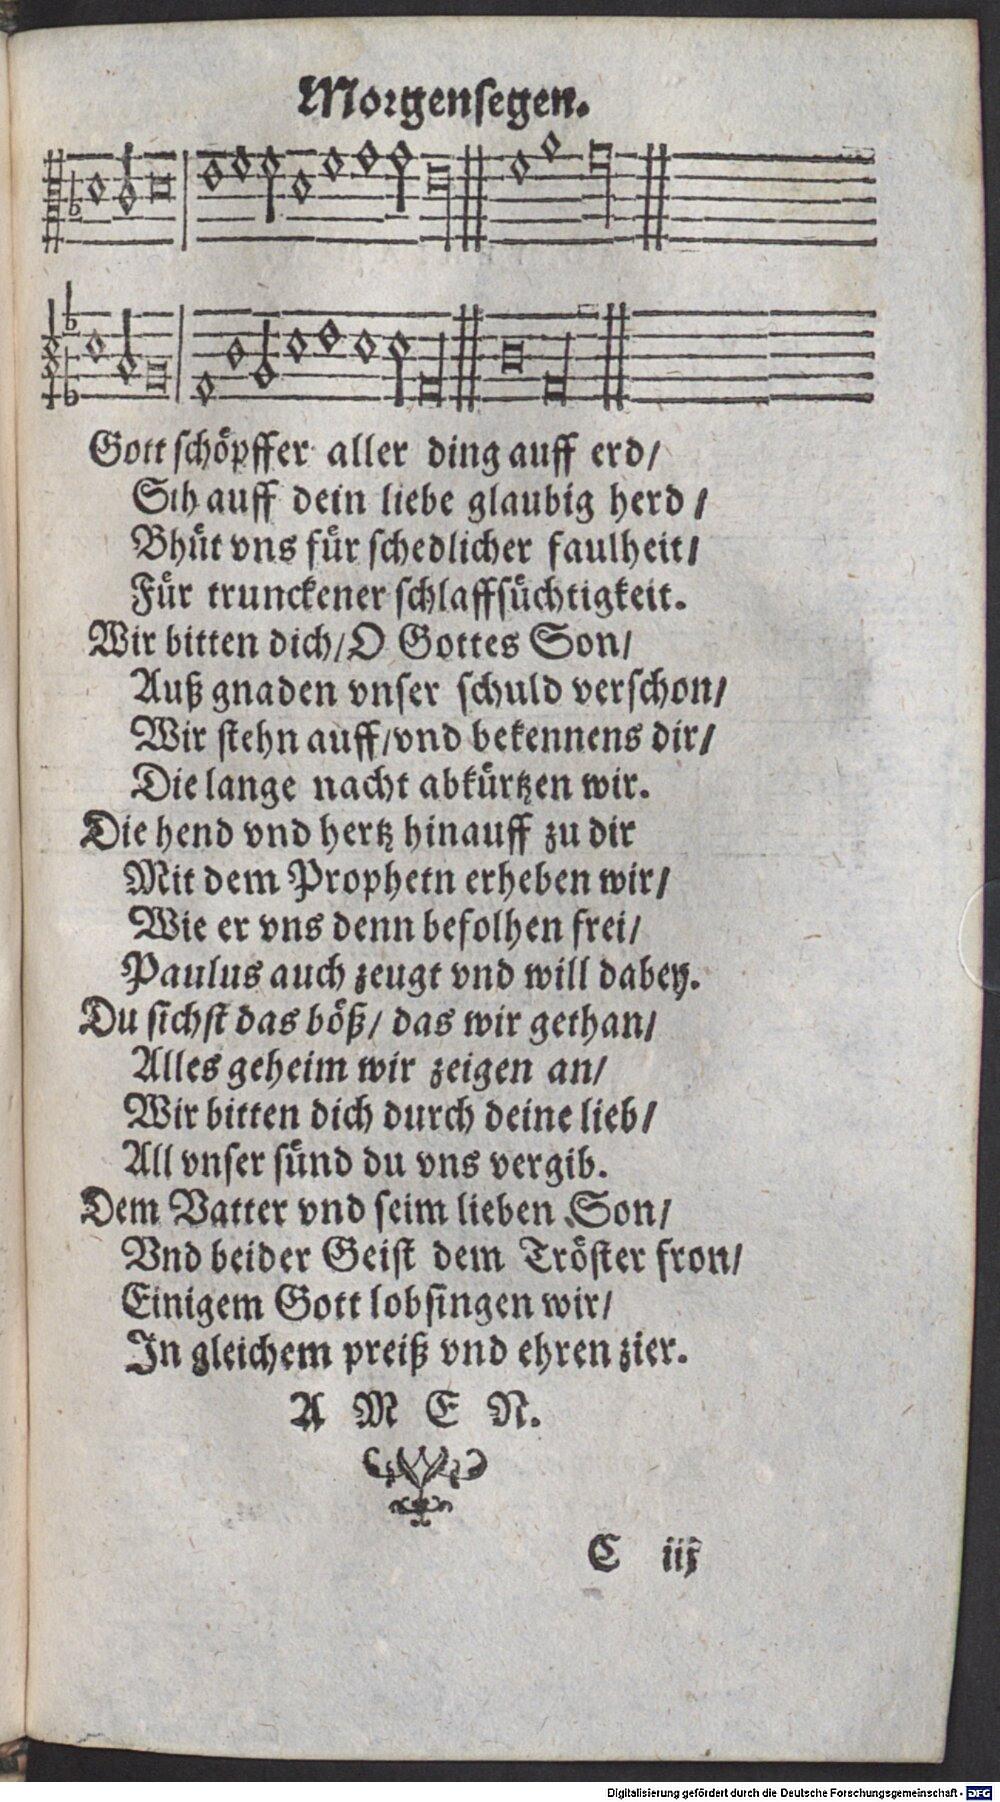 Morgensegen.
Gott schöpffer aller ding auff erd/
Sih auff dein liebe glaubig herd/
Bhüt vns für schedlicher faulheit/
Für trunckener schlaffsüchtigkeit.
Wir bitten dich/O Gottes Son/
Auß gnaden vnser schuld verschon/
Wir stehn auff/vnd bekennens dir/
Die lange nacht abkürtzen wir.
Die hend vnd hertz hinauff zu dir
Mit dem Prophetn erheben wir/
Wie er vns denn befolhen frei/
Paulus auch zeugt vnd will dabey.
Du sichst das böß/ das wir gethan/
Alles geheim wir zeigen an/
Wir bitten dich durch deine lieb/
All vnser sünd du vns vergib.
Dem Vatter vnd seim lieben Son/
Vnd beider Geist dem Tröster fron/
Einigem Gott lobsingen wir/
In gleichem preiß vnd ehren zier.
A M E N.
C iij
Digitalisierung gefördert durch die Deutsche Forschungsgemeinschaft - DFG